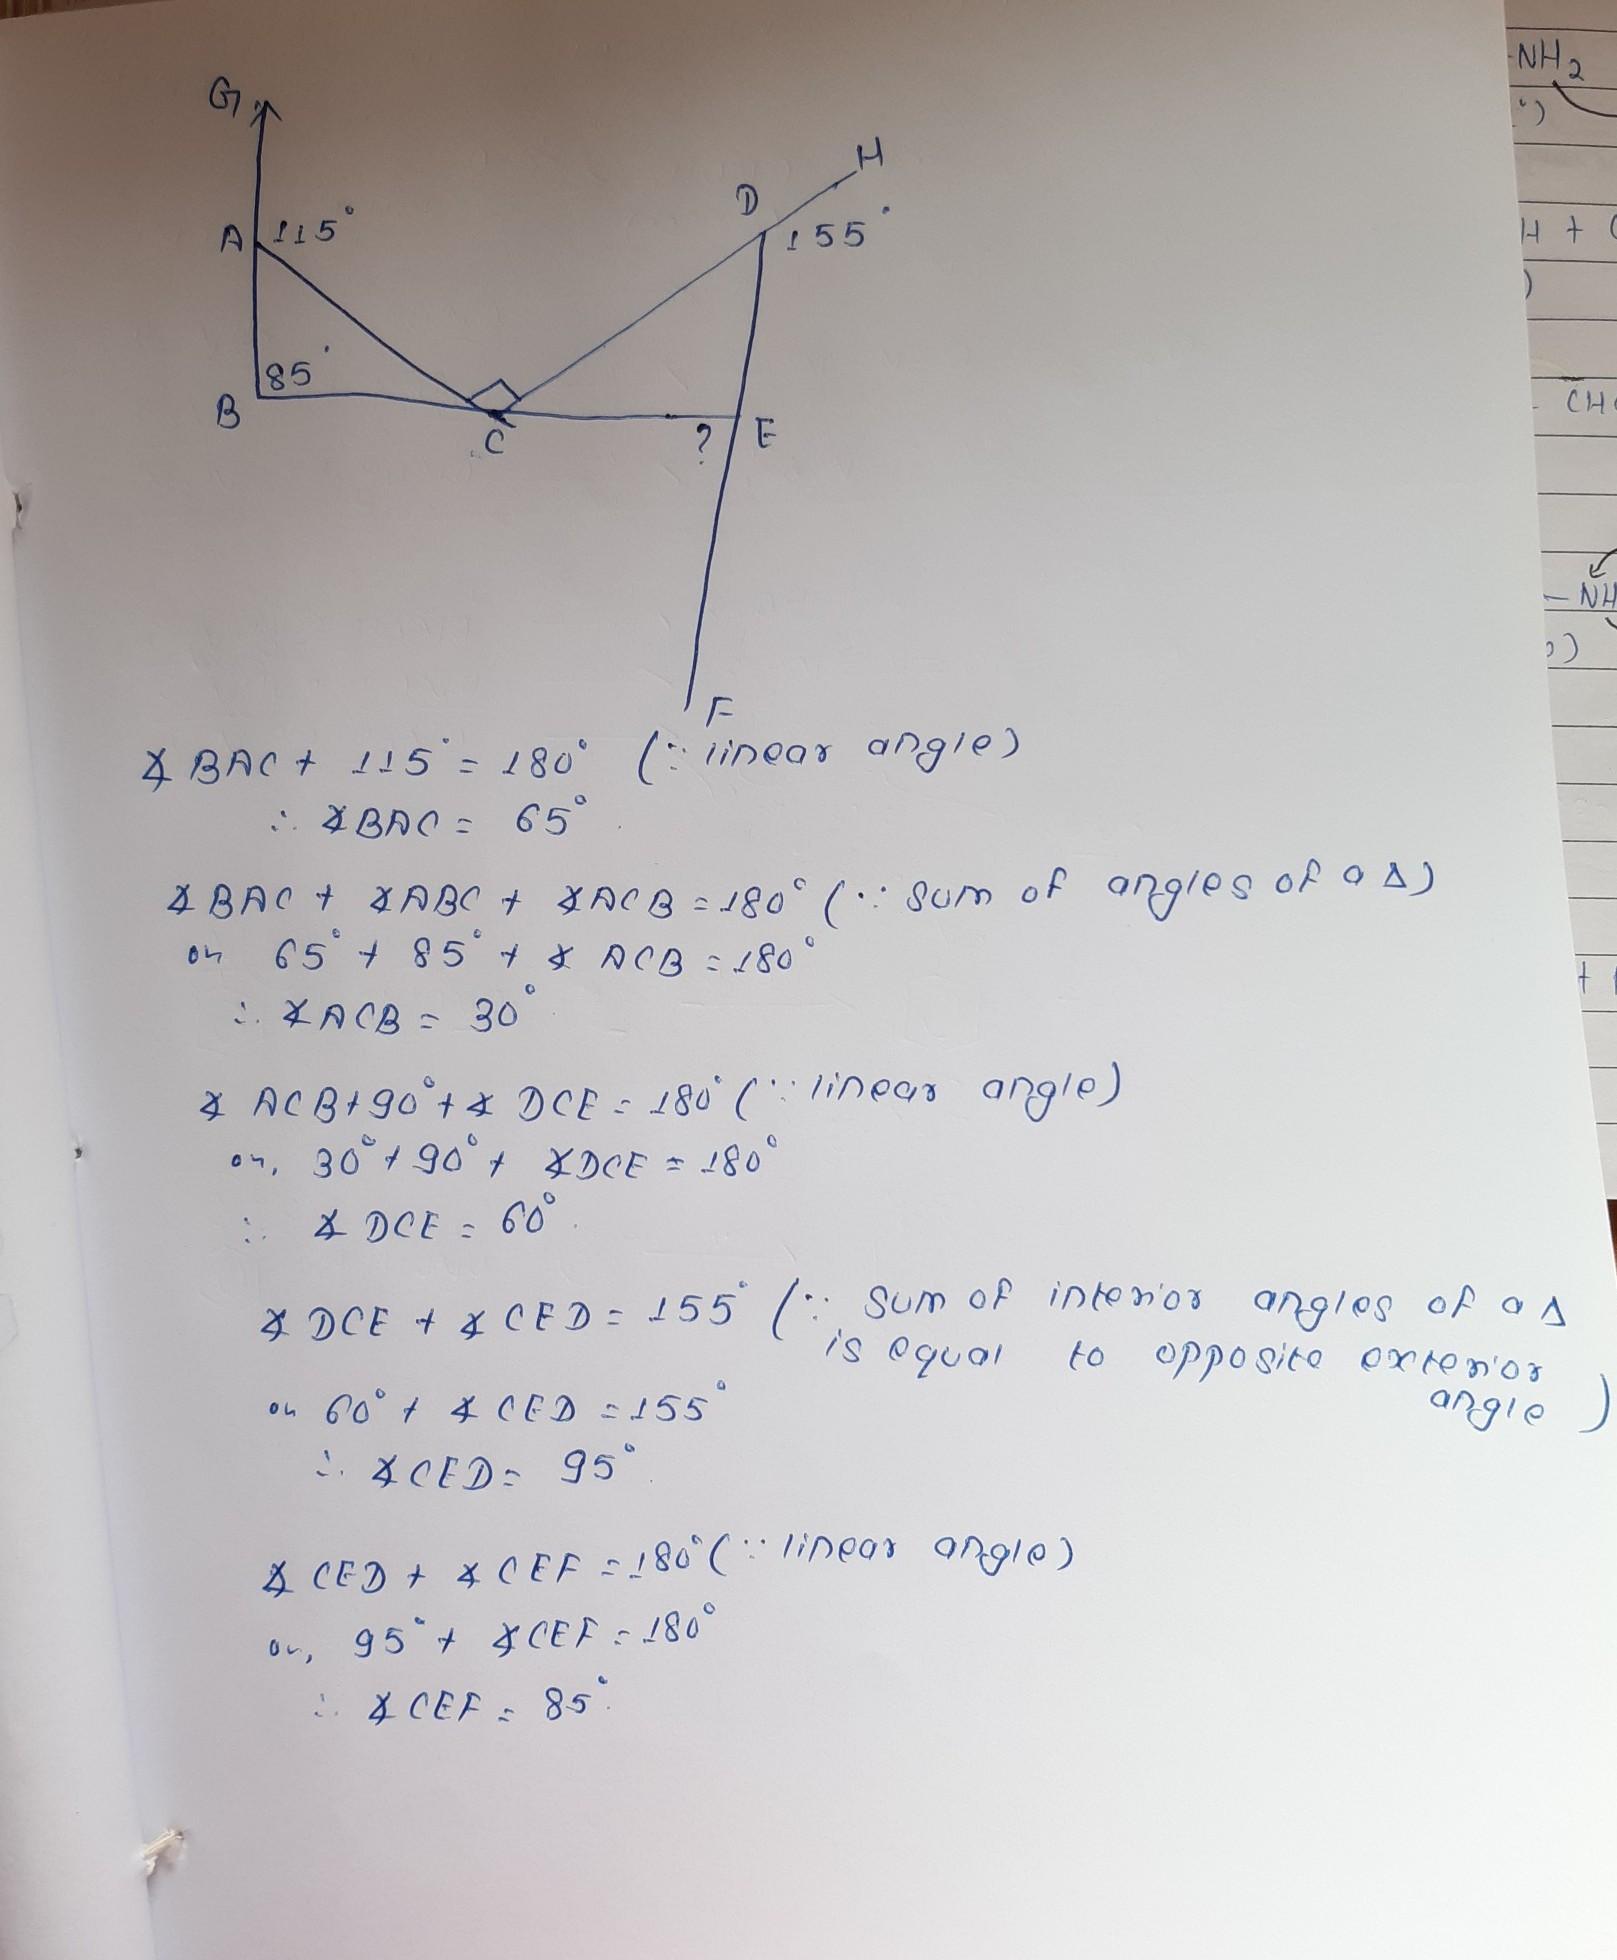 G
H
D
A 115°
155°
85°
B
C
? E
F
∡BAC + 115° = 180° (∵ linear angle)
∴ ∡BAC = 65°
∡BAC + ∡ABC + ∡ACB = 180° (∵ sum of angles of a Δ)
or 65° + 85° + ∡ACB = 180°
∴ ∡ACB = 30°
∡ACB + 90° + ∡DCE = 180° (∵ linear angle)
or, 30° + 90° + ∡DCE = 180°
∴ ∡DCE = 60°
∡DCE + ∡CED = 155° (∵ sum of interior angles of a Δ
is equal to opposite exterior
angle)
or 60° + ∡CED = 155°
∴ ∡CED = 95°
∡CED + ∡CEF = 180° (∵ linear angle)
or, 95° + ∡CEF = 180°
∴ ∡CEF = 85°
NH2
H + 
CH
NH